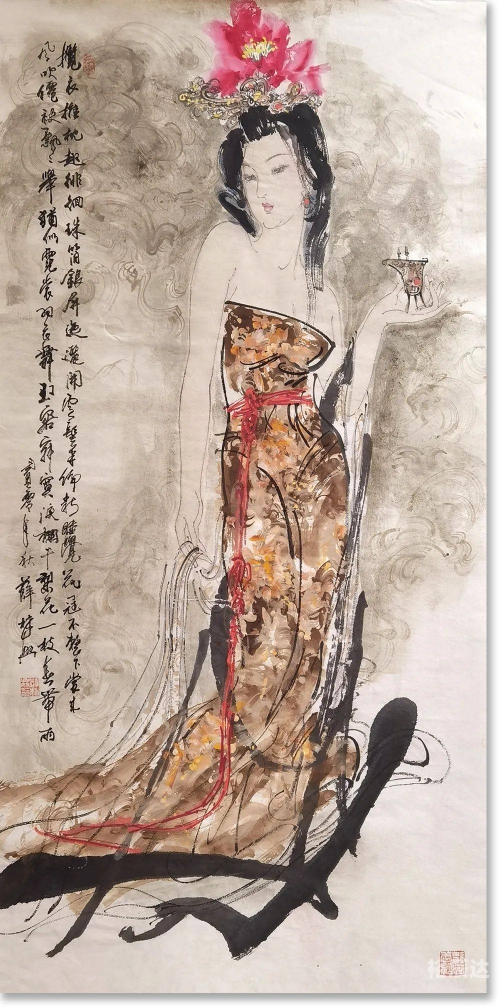 攬衣推枕起徘徊珠箔銀屏迤邐開雲髻半偏新睡覺花冠不整下堂来
風吹僊袂飄飄舉猶似霓裳羽衣舞玉容寂寞淚欄干梨花一枝春帶雨
年秋薛林興
达